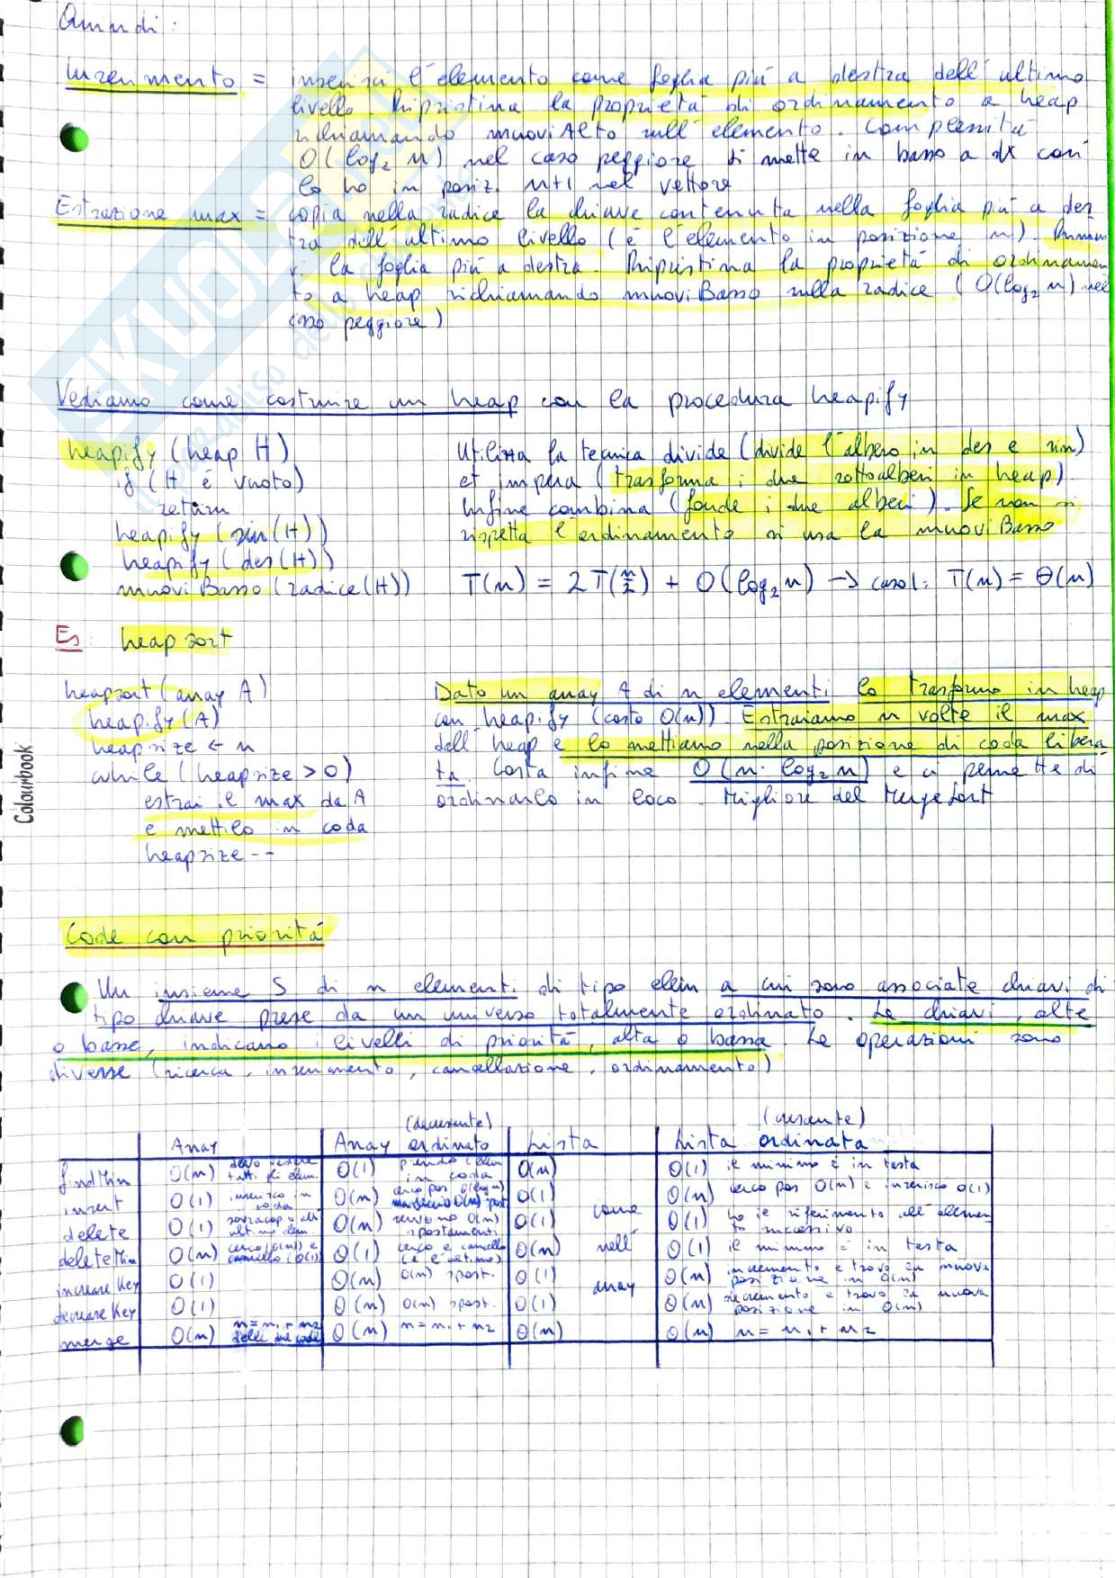 Quindi:
Inserimento = inserisci l'elemento come foglia più a destra dell'ultimo
livello. Ripristina la proprietà di ordinamento a heap
richiamando muoviAlto sull'elemento. Complessità
O(log₂ n) nel caso peggiore. Si mette in basso a dx così
lo ho in posiz. n+1 nel vettore
Estrazione max = copia nella radice la chiave contenuta nella foglia più a des
tra dell'ultimo livello (è l'elemento in posizione n). Rimuo
vi la foglia più a destra. Ripristina la proprietà di ordinamen
to a heap richiamando muoviBasso sulla radice (O(log₂ n) nel
caso peggiore)
Vediamo come costruire un heap con la procedura heapify
heapify (heap H)
if (H è vuoto)
return
heapify (sin(H))
heapify (des(H))
muoviBasso (radice(H))
Utilizza la tecnica divide (divide l'albero in des e sin)
et impera (trasforma i due sottoalberi in heap)
Infine combina (fonde i due alberi). Se non si
rispetta l'ordinamento si usa la muoviBasso
T(n) = 2T(n/2) + O(log₂ n) → caso 1: T(n) = Θ(n)
Es: heap sort
heapsort (array A)
heapify (A)
heapsize ← n
while (heapsize > 0)
estrai il max da A
e mettilo in coda
heapsize --
Dato un array A di n elementi lo trasformo in heap
con heapify (costo O(n)). Estraiamo n volte il max
dell'heap e lo mettiamo nella posizione di coda libera
ta. Costa infine O(n·log₂ n) e ci permette di
ordinarlo in loco. Migliore del MergeSort
Colourbook
Code con priorità
Un insieme S di n elementi di tipo elem a cui sono associate chiavi di
tipo chiave prese da un universo totalmente ordinato. Le chiavi, alte
o basse, indicano i livelli di priorità, alta o bassa. Le operazioni sono
diverse (ricerca, inserimento, cancellazione, ordinamento)
(decrescente) (crescente)
Array Array ordinato Lista Lista ordinata
findMin O(n) devo vedere tutti gli elem. O(1) prendo l'elem in coda O(n) O(1) il minimo è in testa
insert O(1) inserisco in coda O(n) cerco pos O(log n) O(1) O(n) cerco pos O(n) e inserisco O(1)
delete O(1) O(n) servono O(n) spostamenti O(1) O(1) ho il riferimento all'elemento successivo
deleteMin O(n) cerco (O(n)) e cancello (O(1)) O(1) cerco e cancello (è l'ultimo) O(n) O(1) il minimo è in testa
increaseKey O(1) O(n) O(n) spost. O(1) O(n) incremento e trovo la nuova posizione in O(n)
decreaseKey O(1) O(n) O(n) spost. O(1) O(n) decremento e trovo la nuova posizione in O(n)
merge O(n) n = n₁ + n₂ delle due code O(n) n = n₁ + n₂ O(n) O(n) n = n₁ + n₂
come
nell'
array